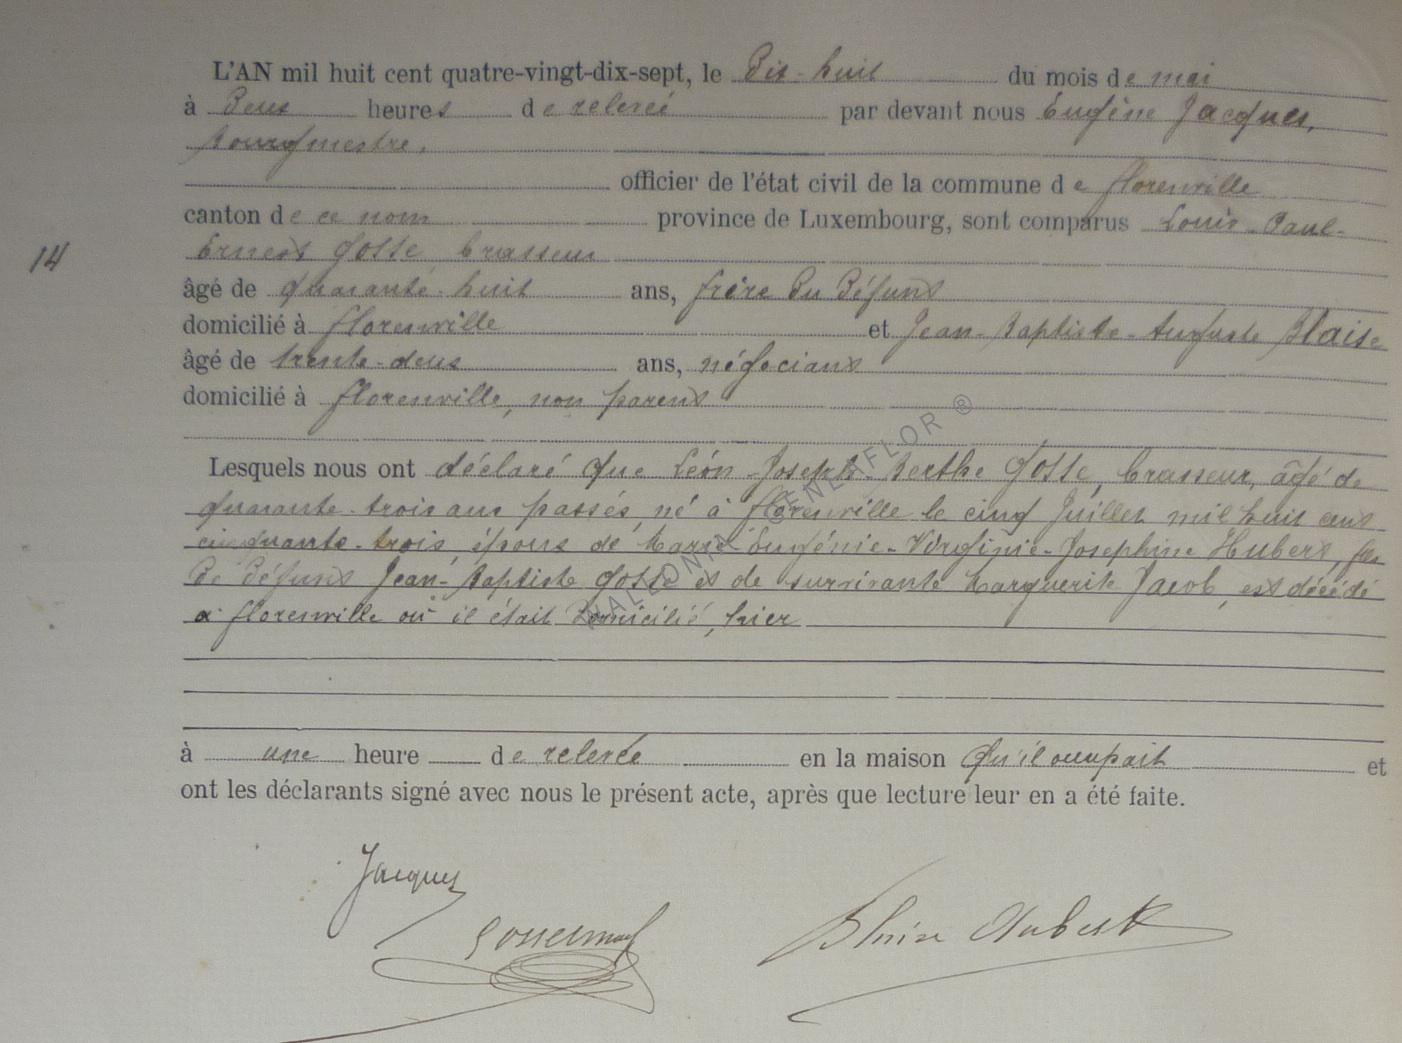 L'AN mil huit cent quatre-vingt-dix-sept, le Dix-huit du mois de mai
à Deux heures de relevée par devant nous Eugène Jacques,
Bourgmestre,
officier de l'état civil de la commune de Florenville
canton de ce nom province de Luxembourg, sont comparus Louis-Paul-
14
Ernest Gosse, brasseur
âgé de quarante-huit ans, frère du défunt
domicilié à Florenville et Jean-Baptiste-Auguste Blaise
âgé de trente-deux ans, négociant
domicilié à Florenville, non parent
Lesquels nous ont déclaré que Léon-Joseph-Berthe Gosse, brasseur, âgé de
quarante-trois ans passés, né à Florenville le cinq Juillet mil huit cent
cinquante-trois, époux de Marie-Eugénie-Virginie-Josephine Hubert, fils
de défunt Jean-Baptiste Gosse et de survivante Marguerite Jacob, est décédé
à Florenville où il était domicilié, hier
à une heure de relevée en la maison qu'il occupait et
ont les déclarants signé avec nous le présent acte, après que lecture leur en a été faite.
Jacques
Blaise Hubert
WALLONIA GENEAFLOR ®